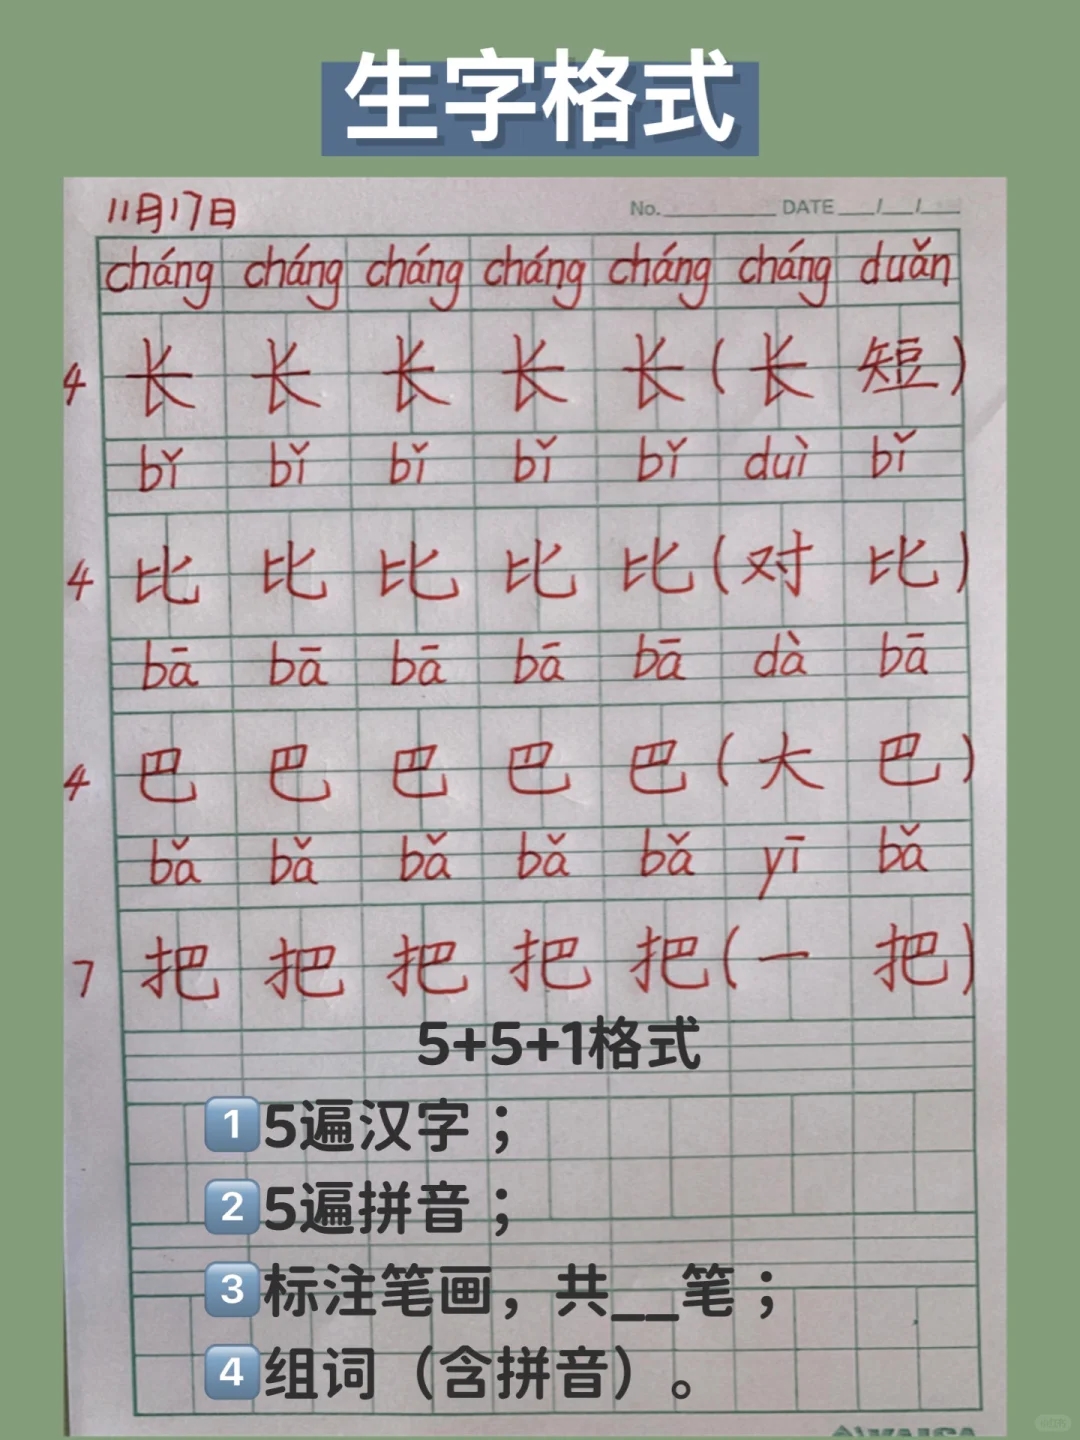 生字格式
11月17日
No. DATE / /
cháng cháng cháng cháng cháng cháng duǎn
4 长 长 长 长 长 (长 短)
bǐ bǐ bǐ bǐ bǐ duì bǐ
4 比 比 比 比 比 (对 比)
bā bā bā bā bā dà bā
4 巴 巴 巴 巴 巴 (大 巴)
bǎ bǎ bǎ bǎ bǎ yī bǎ
7 把 把 把 把 把 (一 把)
5+5+1格式
1 5遍汉字；
2 5遍拼音；
3 标注笔画，共__笔；
4 组词（含拼音）。